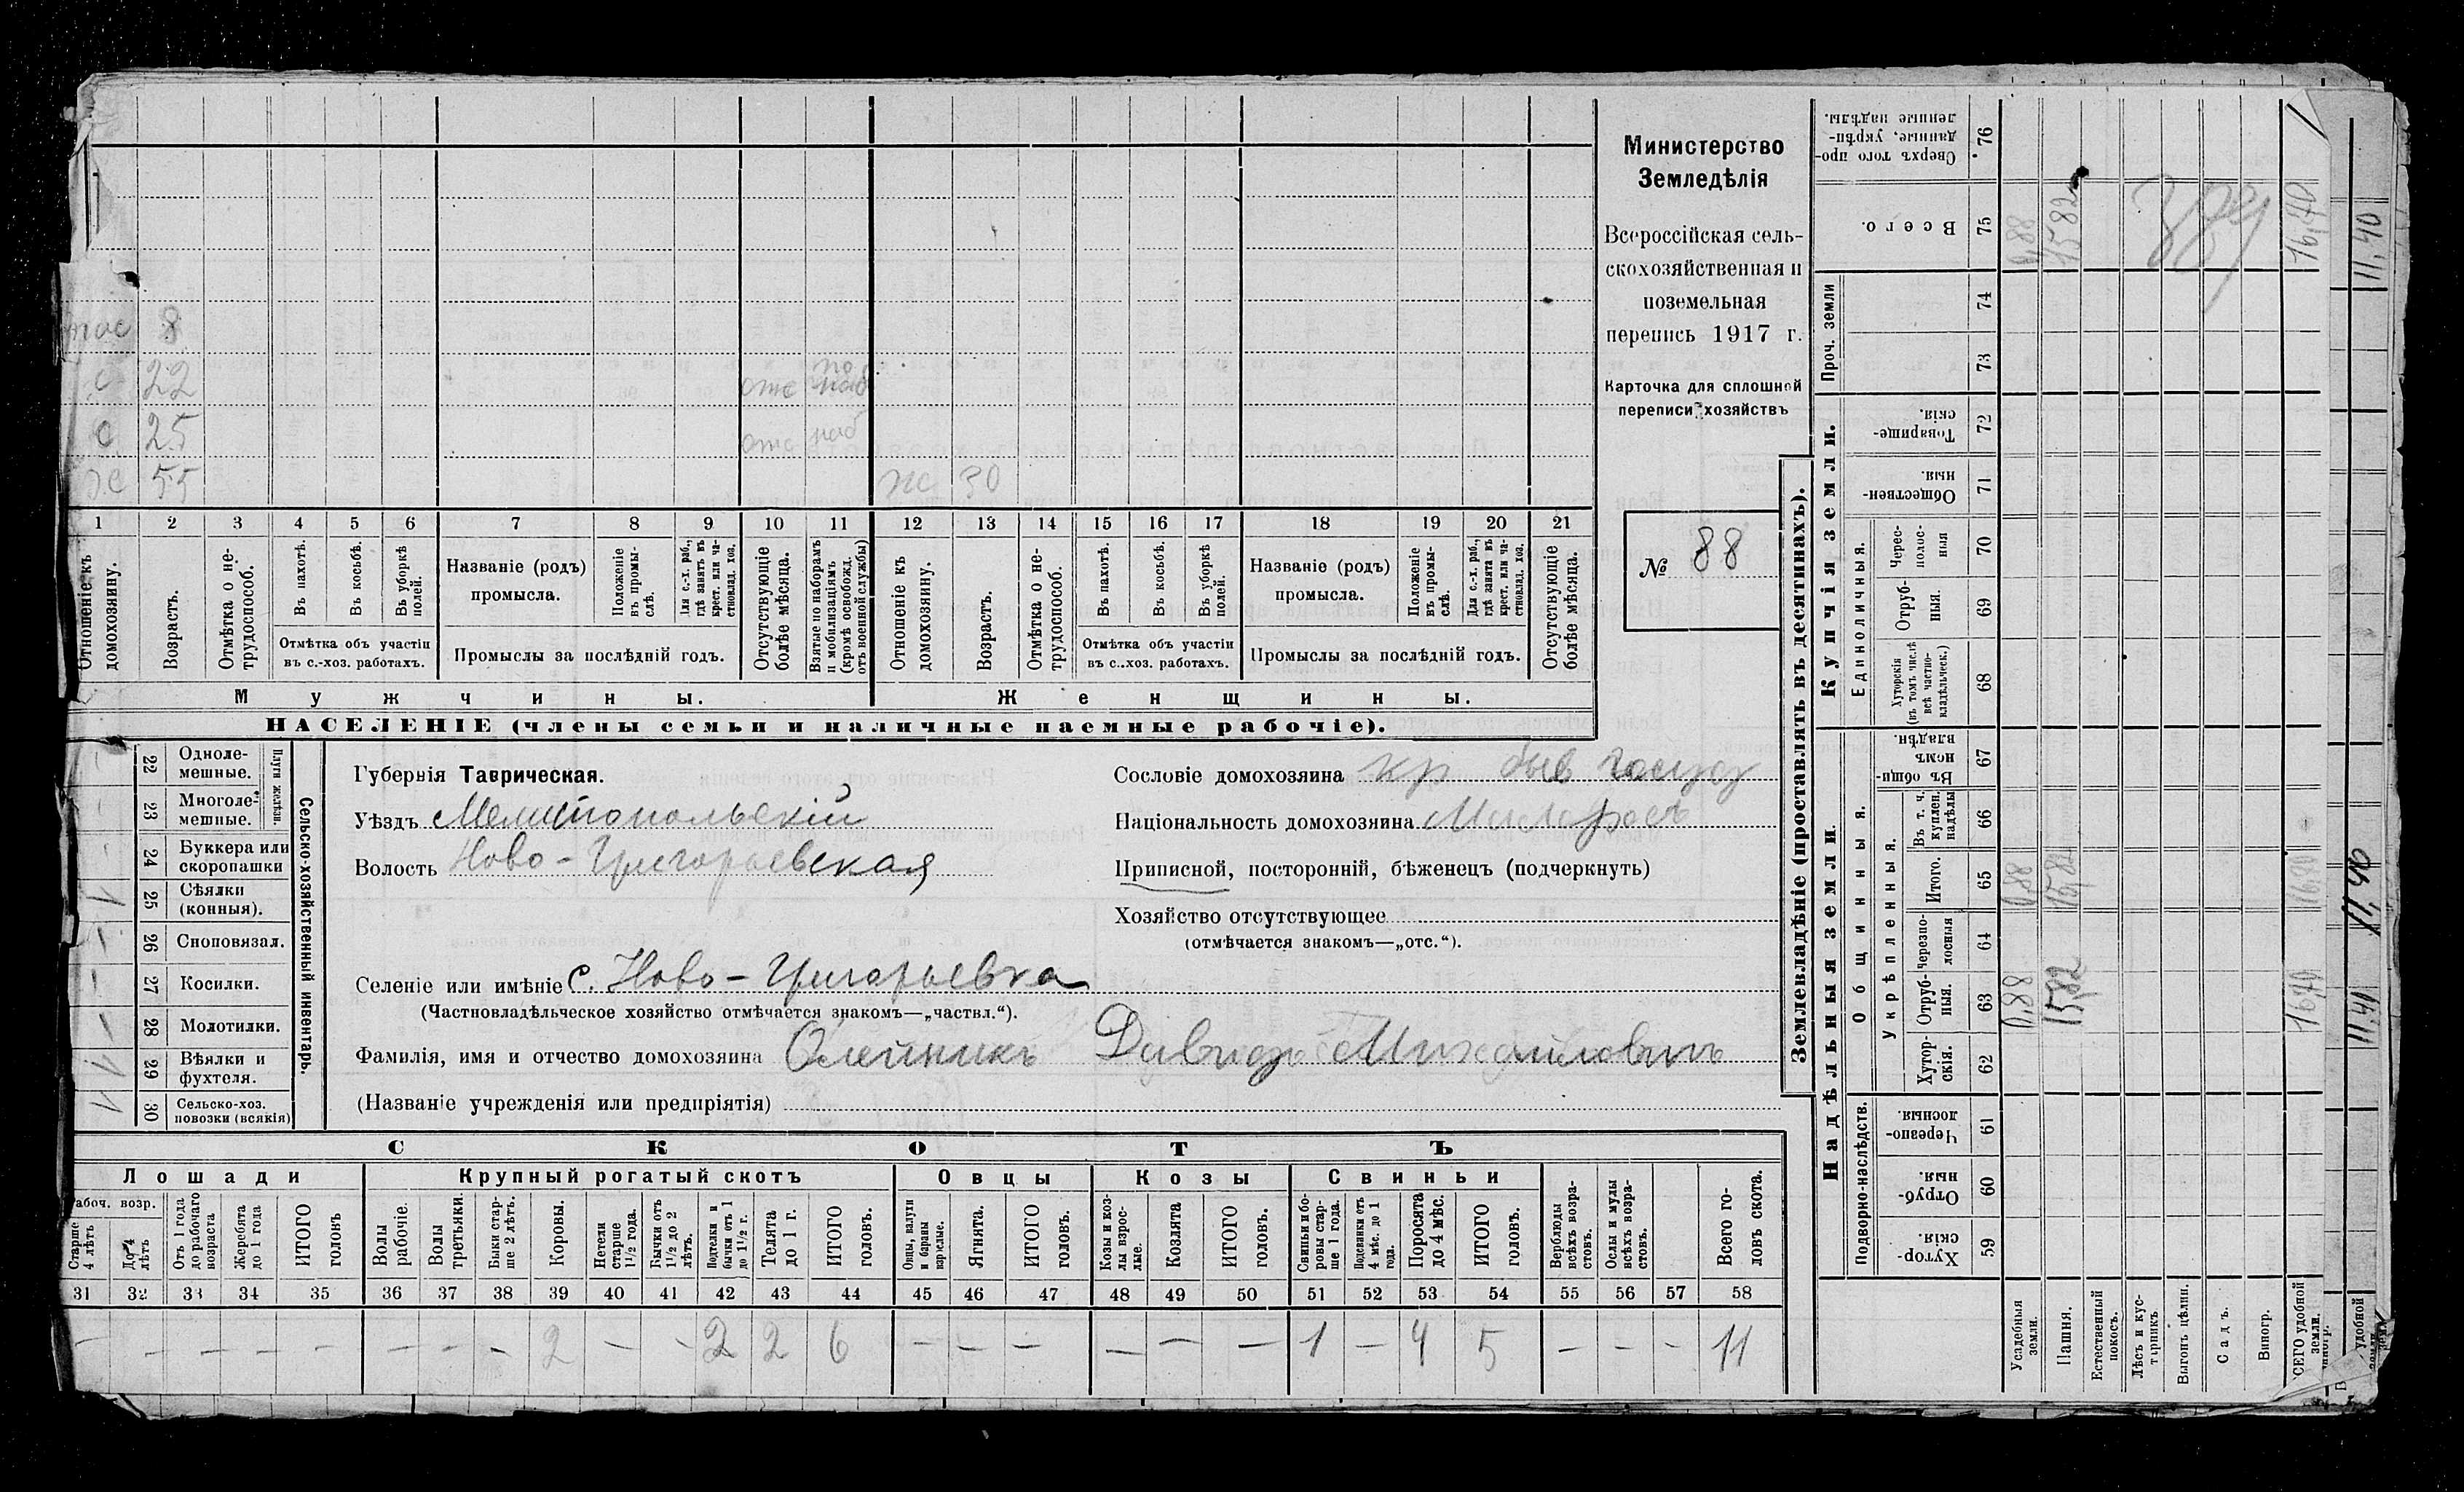 Министерство
Земледѣлія
Всероссійская сель-
скохозяйственная и
поземельная
перепись 1917 г.
Карточка для сплошной
переписи хозяйствъ
№ 88
8
с 22 отс по наб
с 25 отс наб
55 ж 30
1 2 3 4 5 6 7 8 9 10 11 12 13 14 15 16 17 18 19 20 21
Отношеніе къ домохозяину.
Возрастъ.
Отмѣтка о не-
трудоспособ.
Въ пахотѣ.
Въ косьбѣ.
Въ уборкѣ полей.
Отмѣтка объ участіи
въ с.-хоз. работахъ.
Названіе (родъ)
промысла.
Положеніе въ промы-
слѣ.
Для с.-х. раб., гдѣ занятъ въ крест. или ча-
стновлад. хоз.
Промыслы за послѣдній годъ.
Отсутствующіе болѣе мѣсяца.
Взятые по наборамъ и мобилизаціямъ (кромѣ освобожд. отъ военной службы)
Отношеніе къ домохозяину.
Возрастъ.
Отмѣтка о не-
трудоспособ.
Въ пахотѣ.
Въ косьбѣ.
Въ уборкѣ полей.
Отмѣтка объ участіи
въ с.-хоз. работахъ.
Названіе (родъ)
промысла.
Положеніе въ промы-
слѣ.
Для с.-х. раб., гдѣ занята въ крест. или ча-
стновлад. хоз.
Промыслы за послѣдній годъ.
Отсутствующіе болѣе мѣсяца.
Мужчины. Женщины.
НАСЕЛЕНІЕ (члены семьи и наличные наемные рабочіе).
Сельско-хозяйственный инвентарь.
Плуги желѣзн.
22 Одноле-
мешные.
23 Многоле-
мешные.
24 Буккера или
скоропашки
25 Сѣялки
(конныя). 1
26 Сноповязал.
27 Косилки.
28 Молотилки.
29 Вѣялки и
фухтеля.
30 Сельско-хоз.
повозки (всякія)
Губернія Таврическая.
Уѣздъ Мелитопольскій
Волость Ново-Григорьевская
Селеніе или имѣніе с. Ново-Григорьевка
(Частновладѣльческое хозяйство отмѣчается знакомъ—„частвл.“).
Фамилія, имя и отчество домохозяина Олейникъ Давидъ Михайловичъ
(Названіе учрежденія или предпріятія)
Сословіе домохозяина кр быв госуд
Національность домохозяина Малоросъ
Приписной, посторонній, бѣженецъ (подчеркнуть)
Хозяйство отсутствующее
(отмѣчается знакомъ—„отс.“).
СКОТЪ
Лошади Крупный рогатый скотъ Овцы Козы Свиньи
Рабоч. возр.
Старше 4 лѣтъ
До 4 лѣтъ
Отъ 1 года до рабочаго возраста
Жеребята до 1 года
ИТОГО головъ
Волы рабочіе.
Волы третьяки.
Быки стар-
ше 2 лѣтъ.
Коровы.
Нетели старше 1½ года.
Бычки отъ 1½ до 2 лѣтъ.
Подтелки и бычки отъ 1 до 1½ г.
Телята до 1 г.
ИТОГО головъ.
Овцы, валухи и бараны взрослые.
Ягнята.
ИТОГО головъ.
Козы и коз-
лы взрос-
лые.
Козлята
ИТОГО головъ.
Свиньи и бо-
ровы стар-
ше 1 года.
Подсвинки отъ 4 мѣс. до 1 года.
Поросята до 4 мѣс.
ИТОГО головъ.
Верблюды всѣхъ возра-
стовъ.
Ослы и мулы всѣхъ возра-
стовъ.
Всего го-
ловъ скота.
31 32 33 34 35 36 37 38 39 40 41 42 43 44 45 46 47 48 49 50 51 52 53 54 55 56 57 58
— — — — — — — — 2 — — 2 2 6 — — — — — — 1 — 4 5 — — — 11
Землевладѣніе (проставлять въ десятинахъ).
Надѣльныя земли. Купчія земли.
Подворно-наслѣдств.
Общинныя.
Укрѣпленныя.
Единоличныя.
Проч. земли
Хутор-
скія. 59
Отруб-
ныя. 60
Черезпо-
лосныя. 61
Хутор-
скія. 62
Отруб-
ныя. 63
Черезпо-
лосныя 64
Итого. 65
Въ т. ч. куплен. надѣлы 66
Въ общи-
номъ владѣн. 67
Хуторскія (въ томъ числѣ всѣ частно-
владѣльческ.) 68
Отруб-
ныя. 69
Черес-
полос-
ныя 70
Обществен-
ныя. 71
Товарище-
скія. 72
73
74
Всего. 75
Сверхъ того про-
данные, укрѣп-
ленные надѣлы. 76
Усадебныя земли. 0,88 0,88 0,88
Пашня. 15,82 15,82 15,82
Естественный покосъ.
Лѣсъ и кус-
тарникъ
Выгонъ цѣлин.
Садъ.
Виногр.
ВСЕГО удобной земли. 16,70 16,70 16,70
удобной
11,40 11,40 11,40